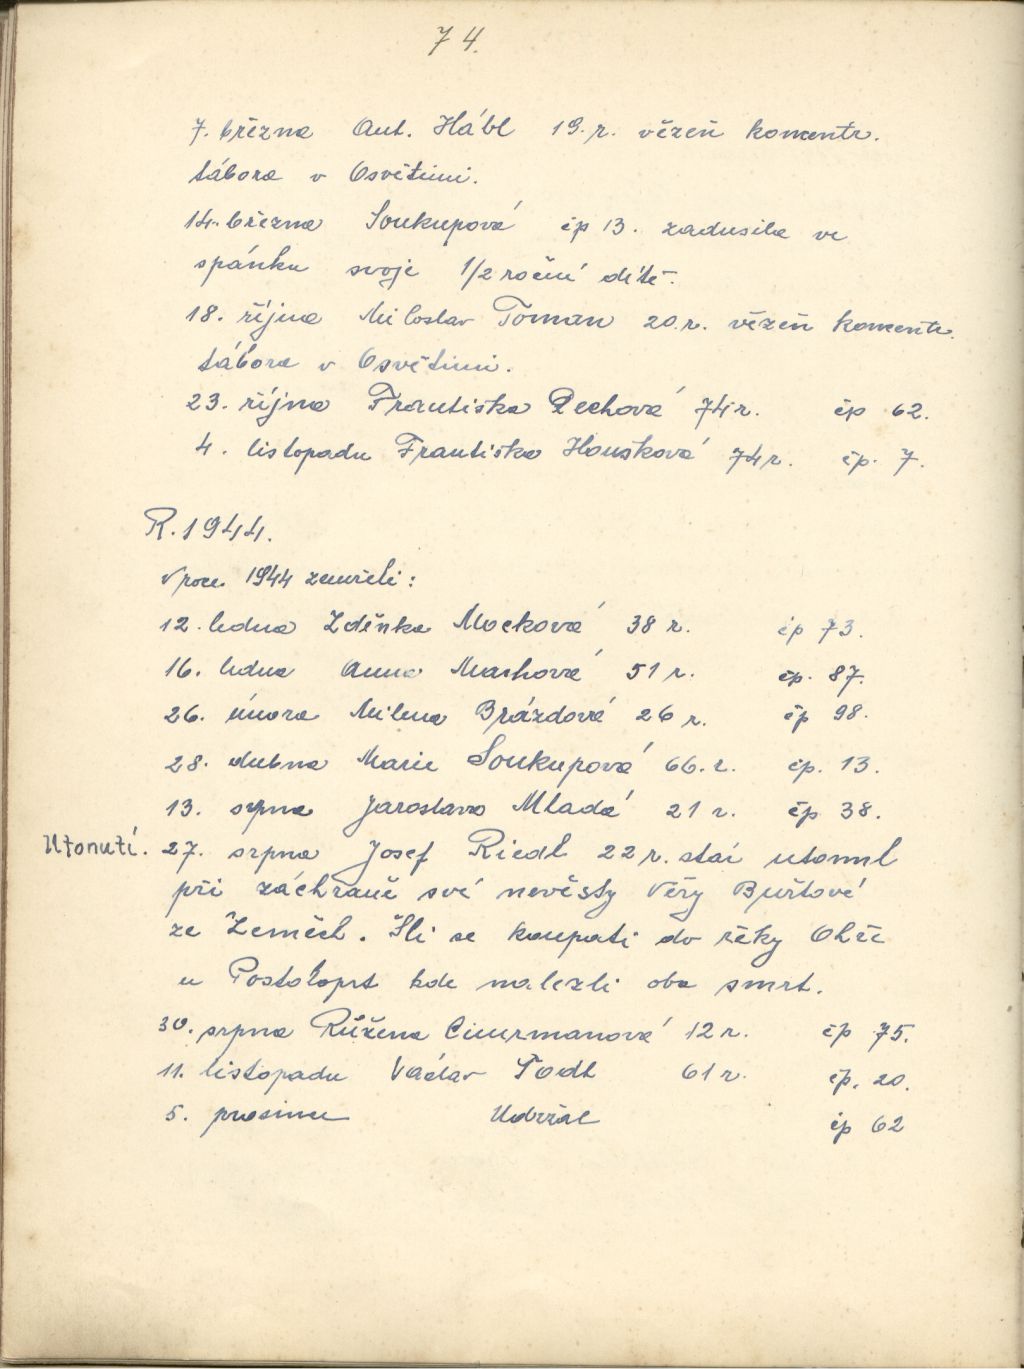 74.
7. března Ant. Hábl 19.r. vězeň koncentr.
tábora v Osvětimi.
14. března Soukupová čp 13. zadusila ve
spánku svoje 1/2 roční dítě.
18. října Miloslav Toman 20.r. vězeň koncentr.
tábora v Osvětimi.
23. října Františka Pechová 74r. čp 62.
4. listopadu Františka Housková 74r. čp. 7.
R. 1944.
V roce 1944 zemřeli:
12. ledna Zdeňka Macková 38 r. čp 73.
16. ledna Anna Machová 51 r. čp. 87.
26. února Milena Brázdová 26 r. čp 98.
28. dubna Marie Soukupová 66.r. čp. 13.
13. srpna Jaroslava Mladá 21 r. čp 38.
Utonutí. 27. srpna Josef Riedl 22 r. stár utonul
při záchraně své nevěsty Věry Buřtové
ze Zeměch. Šli se koupati do řeky Ohře
u Postoloprt kde nalezli oba smrt.
30. srpna Růžena Cimrmanová 12 r. čp 75.
11. listopadu Václav Todl 61 r. čp. 20.
5. prosince Udržal čp 62